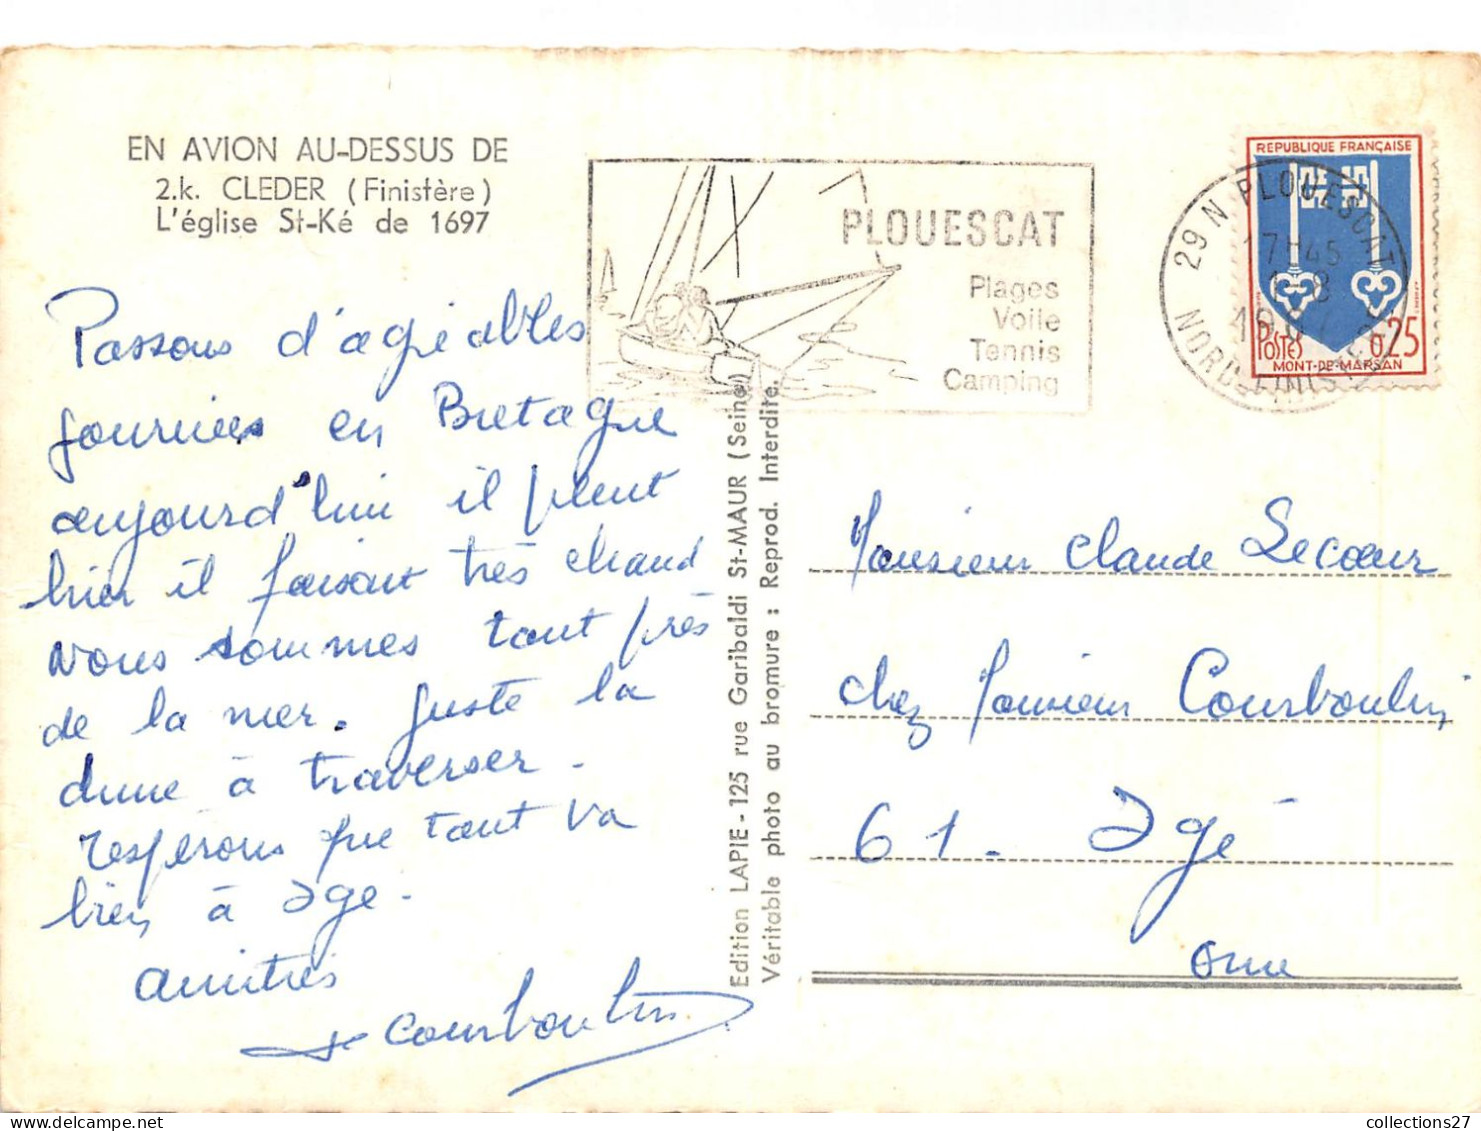 EN AVION AU-DESSUS DE
2.k. CLEDER (Finistère)
L'église St-Ké de 1697
Passons d'agréables
journées en Bretagne
aujourd'hui il pleut
hier il faisait très chaud
nous sommes tout près
de la mer. Juste la
dune à traverser.
J'espérons que tout va
bien à Igé.
amitiés
Courboulin
PLOUESCAT
Plages
Voile
Tennis
Camping
29 N PLOUESCAT
17H45
NORD-FINISTÈRE
REPUBLIQUE FRANÇAISE
POSTES
0,25
MONT-DE-MARSAN
Edition LAPIE - 125 rue Garibaldi St-MAUR (Seine)
Véritable photo au bromure : Reprod. Interdite.
Monsieur Claude Lecoeur
chez Monsieur Courboulin
61. Igé
Orne
collections27